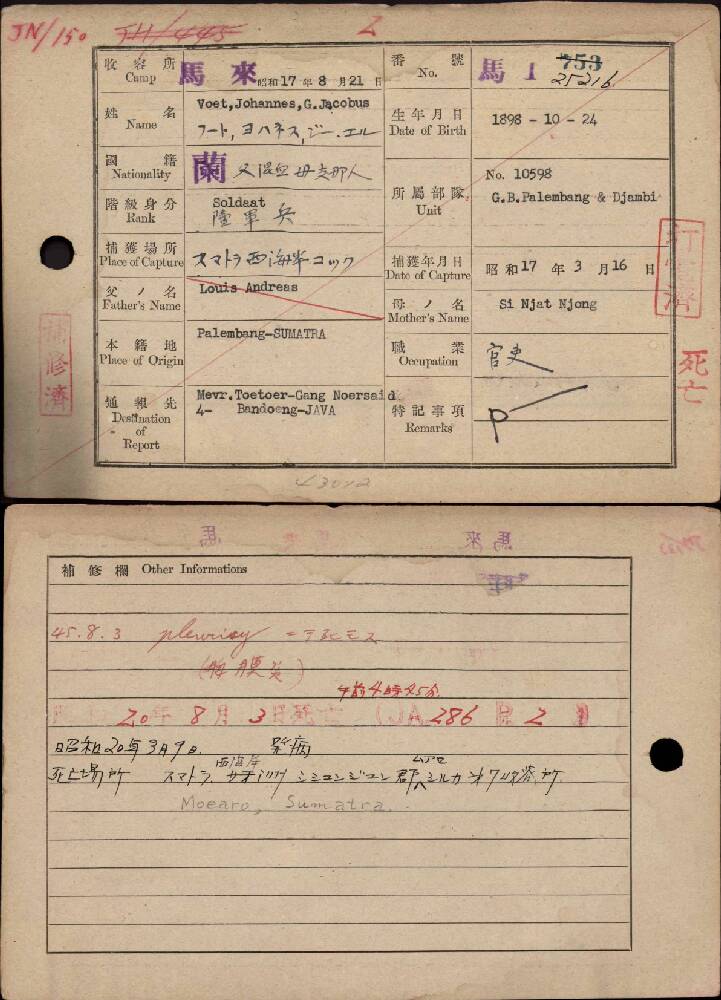 JN/150 JH/445 Z
收容所 Camp 馬來 昭和17年8月21日
番號 No. 馬 I 753 25216
姓名 Name Voet,Johannes,G.Jacobus
フート,ヨハネス,ジー.エル
生年月日 Date of Birth 1898 - 10 - 24
國籍 Nationality 蘭 父混血 母支那人
所屬部隊 Unit No. 10598
G.B.Palembang & Djambi
階級身分 Rank Soldaat
陸軍兵
捕獲場所 Place of Capture スマトラ西海岸コック
捕獲年月日 Date of Capture 昭和17年3月16日
父ノ名 Father's Name Louis Andreas
母ノ名 Mother's Name Si Njat Njong
本籍地 Place of Origin Palembang-SUMATRA
職業 Occupation 官吏
通報先 Destination of Report Mevr.Toetoer-Gang Noersaid
4- Bandoeng-JAVA
特記事項 Remarks P
訂正濟
死亡
補修濟
43092
馬來
補修欄 Other Informations
45.8.3 pleurisy
(肋膜炎)
午前4時45分
20年8月3日死亡 (JA 286 2)
昭和20年3月9日 発病
西海岸
死亡場所 スマトラ
Moearo, Sumatra.